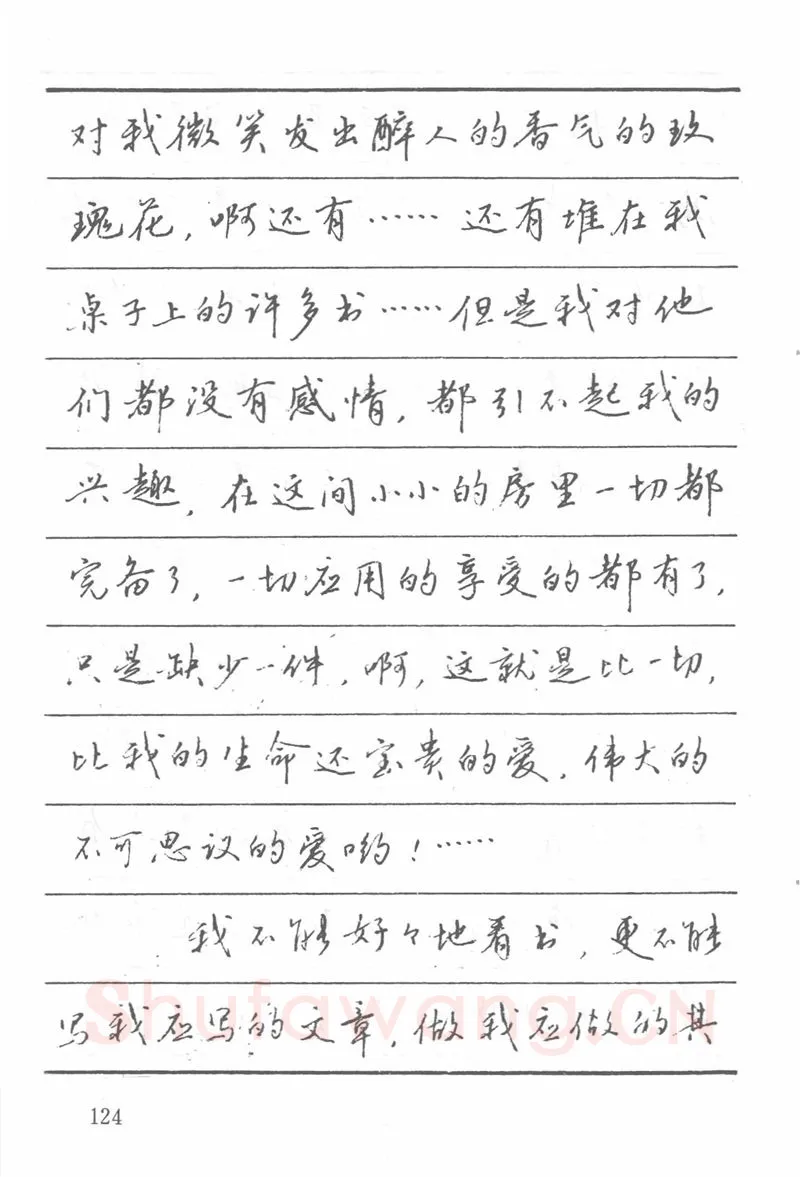 对我微笑发出醉人的香气的玫
瑰花，啊还有……还有堆在我
桌子上的许多书……但是我对他
们都没有感情，都引不起我的
兴趣，在这间小小的房里一切都
完备了，一切应用的享受的都有了，
只是缺少一件，啊，这就是比一切，
比我的生命还宝贵的爱，伟大的
不可思议的爱哟！……
我不能好々地看书，更不能
写我应写的文章，做我应做的其
Shufawang.CN
124